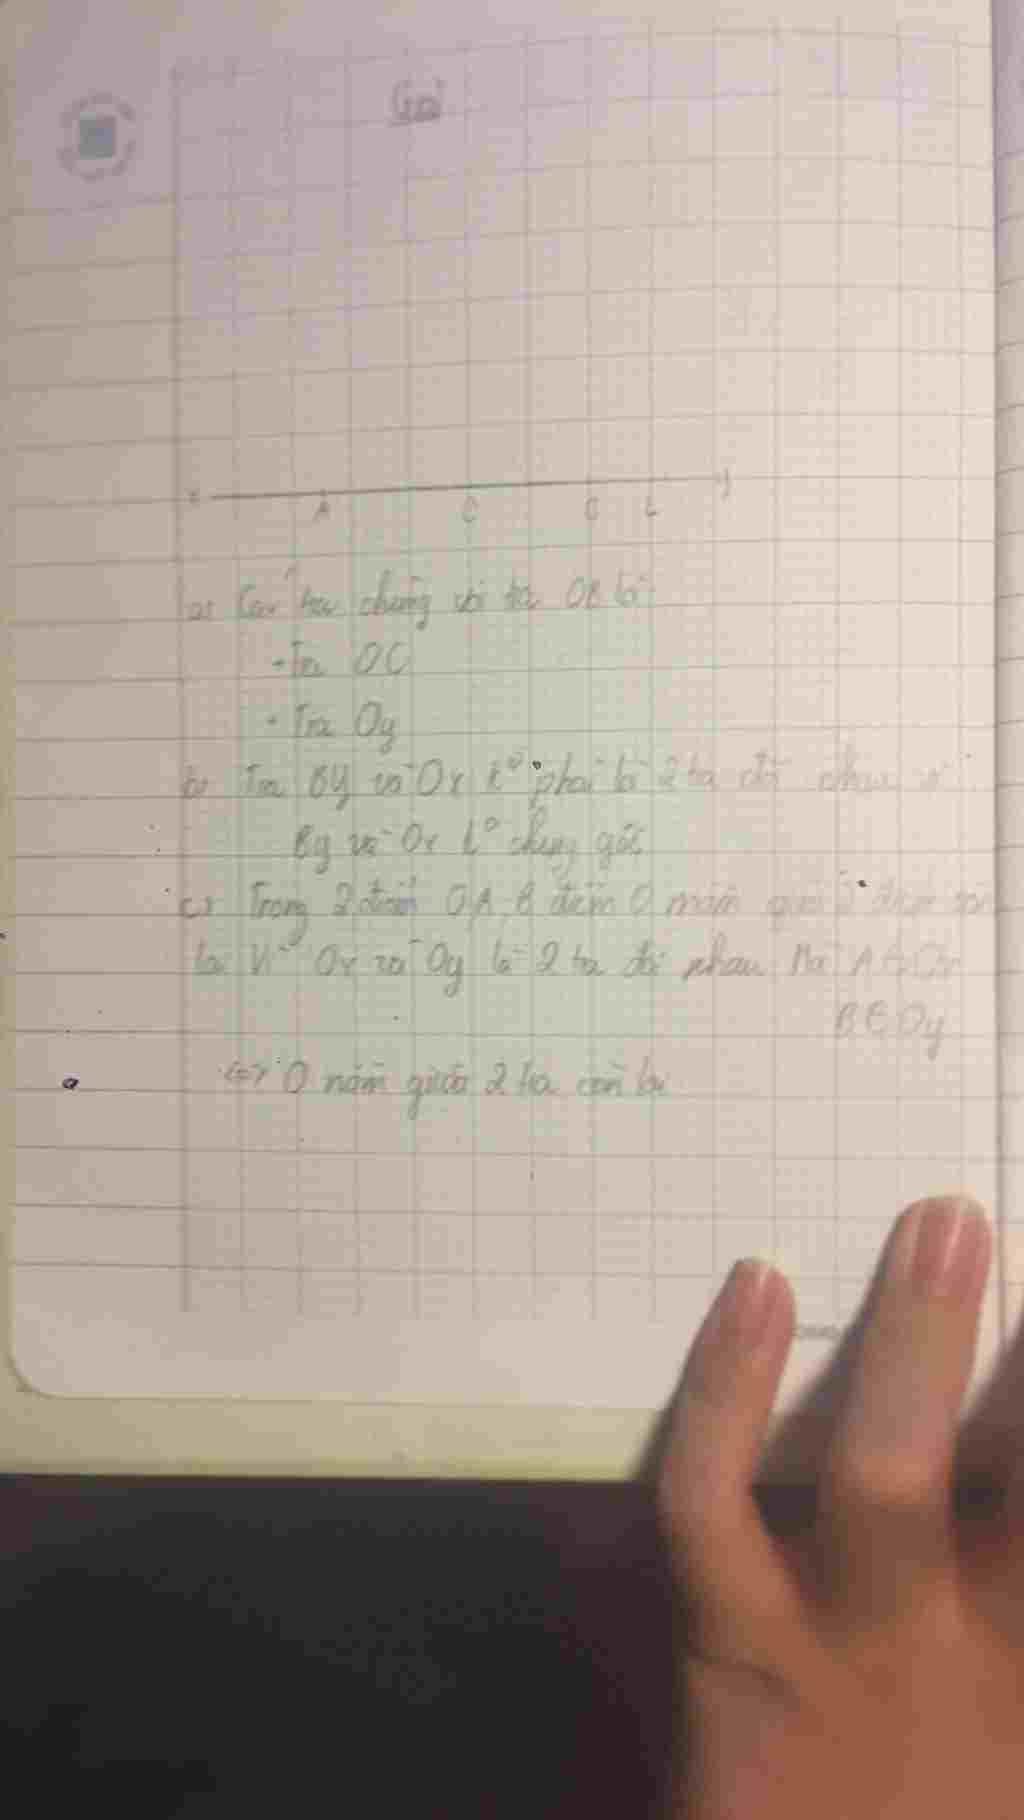 Giải
x A O B C y
a) Các tia chung với tia OB là
- Tia OC
- Tia Oy
b) Tia By và Ox k° phải là 2 tia đối nhau vì
By và Ox k° chung gốc
c) Trong 3 điểm O, A, B điểm O nằm giữa 2 điểm còn
lại vì Ox và Oy là 2 tia đối nhau Mà A ∈ Ox
B ∈ Oy
<=> O nằm giữa 2 tia còn lại